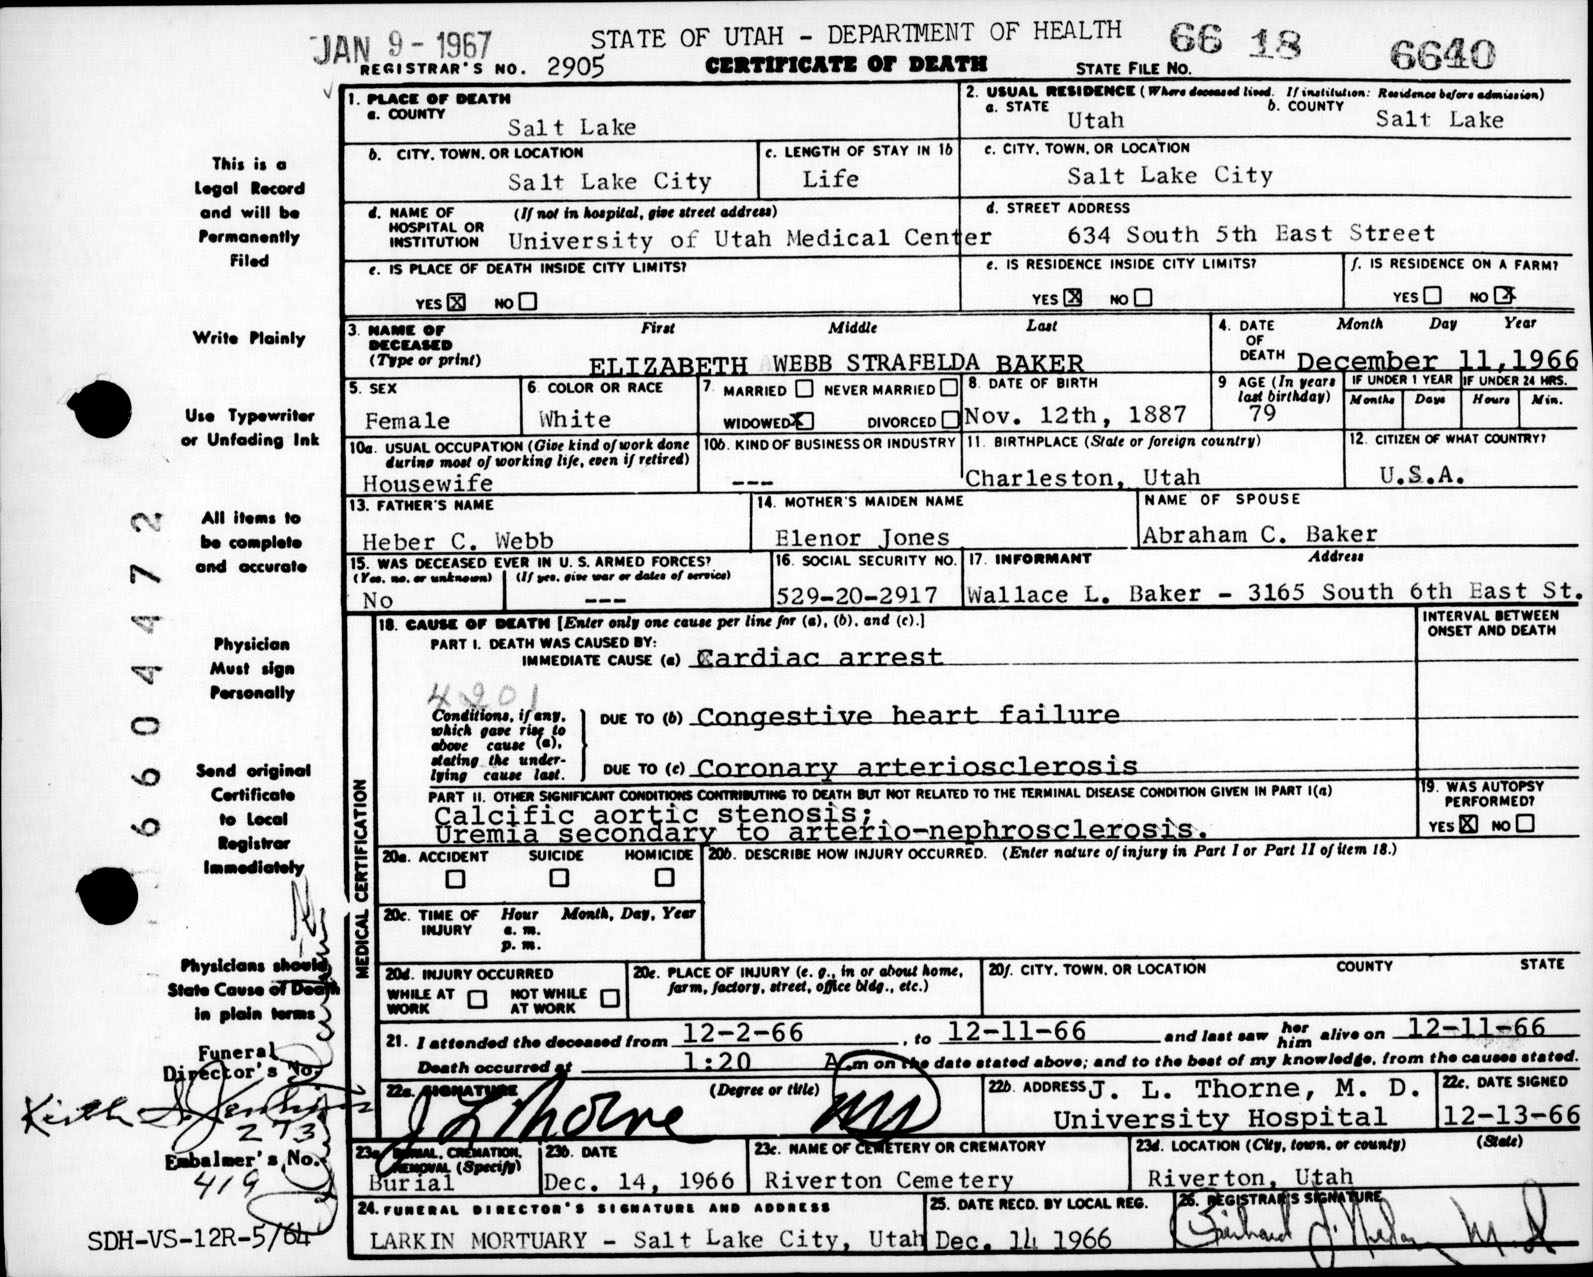 JAN 9 - 1967
STATE OF UTAH - DEPARTMENT OF HEALTH
66 18 6640
REGISTRAR'S NO. 2905 CERTIFICATE OF DEATH STATE FILE NO.
1. PLACE OF DEATH
a. COUNTY
Salt Lake
2. USUAL RESIDENCE (Where deceased lived. If institution: Residence before admission)
a. STATE b. COUNTY
Utah Salt Lake
b. CITY, TOWN, OR LOCATION
Salt Lake City
c. LENGTH OF STAY IN 1b
Life
c. CITY, TOWN, OR LOCATION
Salt Lake City
d. NAME OF HOSPITAL OR INSTITUTION (If not in hospital, give street address)
University of Utah Medical Center
d. STREET ADDRESS
634 South 5th East Street
e. IS PLACE OF DEATH INSIDE CITY LIMITS?
YES X NO
e. IS RESIDENCE INSIDE CITY LIMITS?
YES X NO
f. IS RESIDENCE ON A FARM?
YES NO X
3. NAME OF DECEASED (Type or print)
First Middle Last
ELIZABETH WEBB STRAFELDA BAKER
4. DATE OF DEATH Month Day Year
December 11,1966
5. SEX
Female
6. COLOR OR RACE
White
7. MARRIED NEVER MARRIED
WIDOWED X DIVORCED
8. DATE OF BIRTH
Nov. 12th, 1887
9 AGE (In years last birthday)
79
IF UNDER 1 YEAR
Months Days
IF UNDER 24 HRS.
Hours Min.
10a. USUAL OCCUPATION (Give kind of work done during most of working life, even if retired)
Housewife
10b. KIND OF BUSINESS OR INDUSTRY
---
11. BIRTHPLACE (State or foreign country)
Charleston, Utah
12. CITIZEN OF WHAT COUNTRY?
U.S.A.
13. FATHER'S NAME
Heber C. Webb
14. MOTHER'S MAIDEN NAME
Elenor Jones
NAME OF SPOUSE
Abraham C. Baker
15. WAS DECEASED EVER IN U. S. ARMED FORCES?
(Yes, no, or unknown) (If yes, give war or dates of service)
No ---
16. SOCIAL SECURITY NO.
529-20-2917
17. INFORMANT Address
Wallace L. Baker - 3165 South 6th East St.
MEDICAL CERTIFICATION
18. CAUSE OF DEATH [Enter only one cause per line for (a), (b), and (c).]
INTERVAL BETWEEN ONSET AND DEATH
PART I. DEATH WAS CAUSED BY:
IMMEDIATE CAUSE (a) Cardiac arrest
4201
Conditions, if any, which gave rise to above cause (a), stating the underlying cause last.
DUE TO (b) Congestive heart failure
DUE TO (c) Coronary arteriosclerosis
PART II. OTHER SIGNIFICANT CONDITIONS CONTRIBUTING TO DEATH BUT NOT RELATED TO THE TERMINAL DISEASE CONDITION GIVEN IN PART I(a)
Calcific aortic stenosis;
Uremia secondary to arterio-nephrosclerosis.
19. WAS AUTOPSY PERFORMED?
YES X NO
20a. ACCIDENT SUICIDE HOMICIDE
20b. DESCRIBE HOW INJURY OCCURRED. (Enter nature of injury in Part I or Part II of item 18.)
20c. TIME OF INJURY Hour Month, Day, Year
a. m.
p. m.
20d. INJURY OCCURRED
WHILE AT WORK NOT WHILE AT WORK
20e. PLACE OF INJURY (e. g., in or about home, farm, factory, street, office bldg., etc.)
20f. CITY, TOWN, OR LOCATION COUNTY STATE
21. I attended the deceased from 12-2-66, to 12-11-66 and last saw her him alive on 12-11-66
Death occurred at 1:20 A.m on the date stated above; and to the best of my knowledge, from the causes stated.
22a. SIGNATURE (Degree or title)
J L Thorne MD
22b. ADDRESS J. L. Thorne, M. D.
University Hospital
22c. DATE SIGNED
12-13-66
23a. BURIAL, CREMATION, REMOVAL (Specify)
Burial
23b. DATE
Dec. 14, 1966
23c. NAME OF CEMETERY OR CREMATORY
Riverton Cemetery
23d. LOCATION (City, town, or county) (State)
Riverton, Utah
24. FUNERAL DIRECTOR'S SIGNATURE AND ADDRESS
LARKIN MORTUARY - Salt Lake City, Utah
25. DATE RECD. BY LOCAL REG.
Dec. 14 1966
26. REGISTRAR'S SIGNATURE
This is a
Legal Record
and will be
Permanently
Filed
Write Plainly
Use Typewriter
or Unfading Ink
All items to
be complete
and accurate
Physician
Must sign
Personally
Send original
Certificate
to Local
Registrar
Immediately
Physicians should
State Cause of Death
in plain terms
Funeral
Director's No.
Keith
273
Embalmer's No.
419
SDH-VS-12R-5/64
660 4472